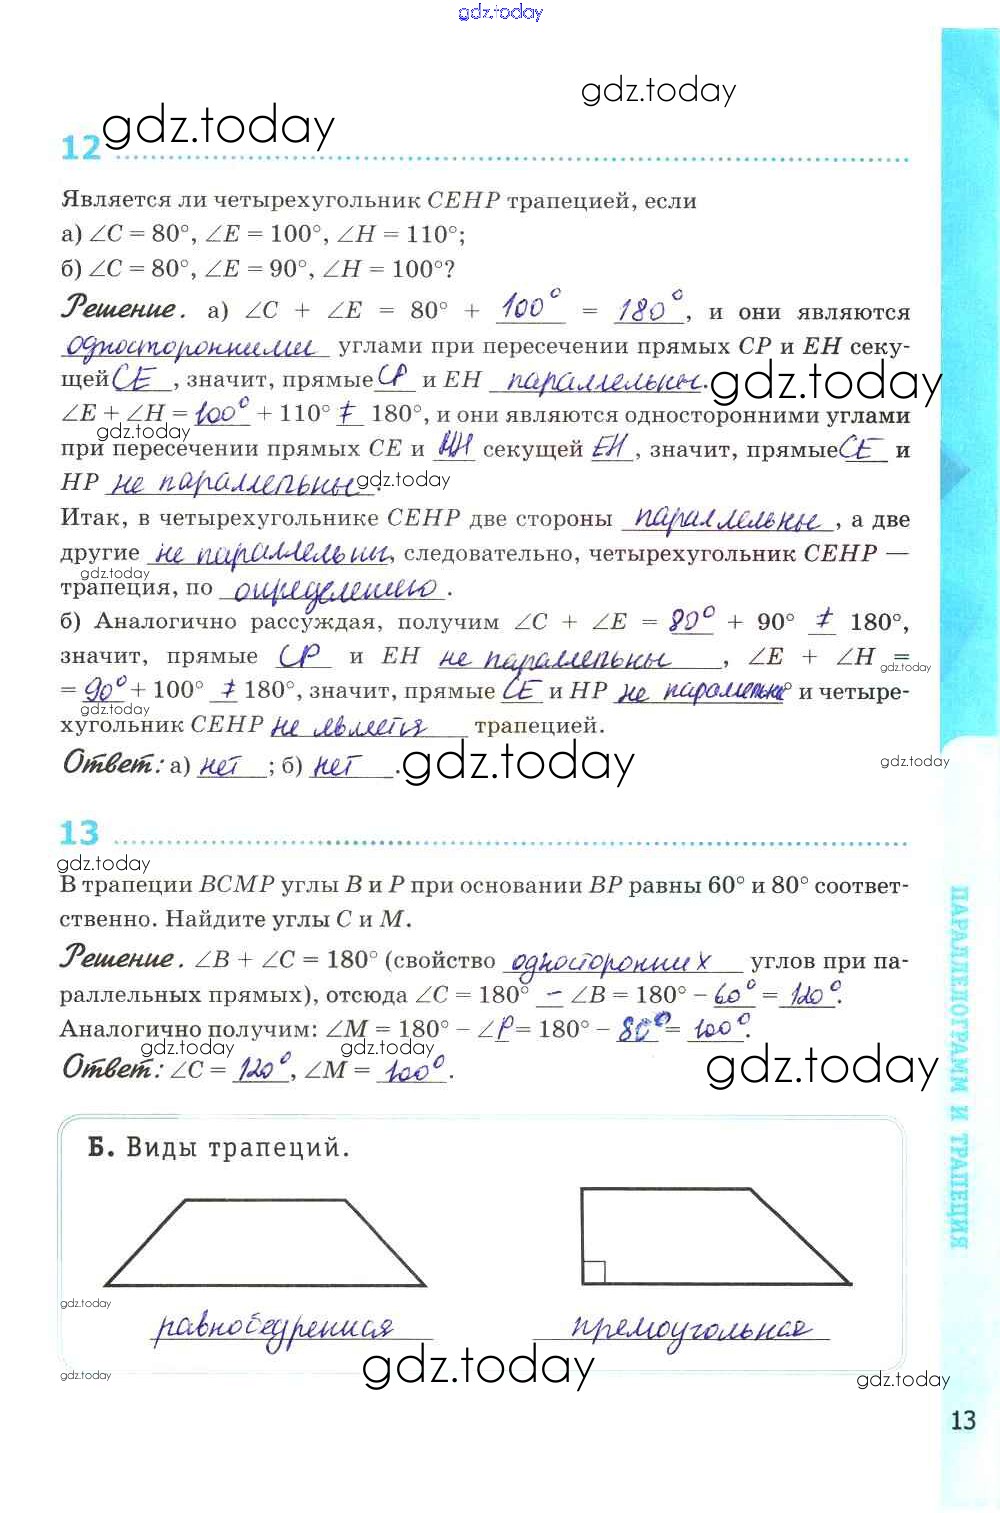 gdz.today
gdz.today
gdz.today
12
Является ли четырехугольник CEHP трапецией, если
а) ∠C = 80°, ∠E = 100°, ∠H = 110°;
б) ∠C = 80°, ∠E = 90°, ∠H = 100°?
Решение. а) ∠C + ∠E = 80° + 100° = 180°, и они являются
односторонними углами при пересечении прямых CP и EH секу-
щей CE, значит, прямые CP и EH параллельны.
gdz.today
∠E + ∠H = 100° + 110° ≠ 180°, и они являются односторонними углами
gdz.today
при пересечении прямых CE и секущей EH, значит, прямые CE и
HP не параллельны.
gdz.today
Итак, в четырехугольнике CEHP две стороны параллельны, а две
другие не параллельны, следовательно, четырехугольник CEHP —
gdz.today
трапеция, по определению.
б) Аналогично рассуждая, получим ∠C + ∠E = 80° + 90° ≠ 180°,
значит, прямые CP и EH не параллельны, ∠E + ∠H =
gdz.today
= 90° + 100° ≠ 180°, значит, прямые CE и HP не параллельны и четыре-
gdz.today
хугольник CEHP не является трапецией.
Ответ: а) нет; б) нет.
gdz.today
gdz.today
13
gdz.today
В трапеции BCMP углы B и P при основании BP равны 60° и 80° соответ-
ственно. Найдите углы C и M.
Решение. ∠B + ∠C = 180° (свойство односторонних углов при па-
раллельных прямых), отсюда ∠C = 180° – ∠B = 180° – 60° = 120°.
Аналогично получим: ∠M = 180° – ∠P = 180° – 80° = 100°.
gdz.today
gdz.today
Ответ: ∠C = 120°, ∠M = 100°.
gdz.today
Б. Виды трапеций.
gdz.today
равнобедренная прямоугольная
gdz.today
gdz.today
gdz.today
ПАРАЛЛЕЛОГРАММ И ТРАПЕЦИЯ
13